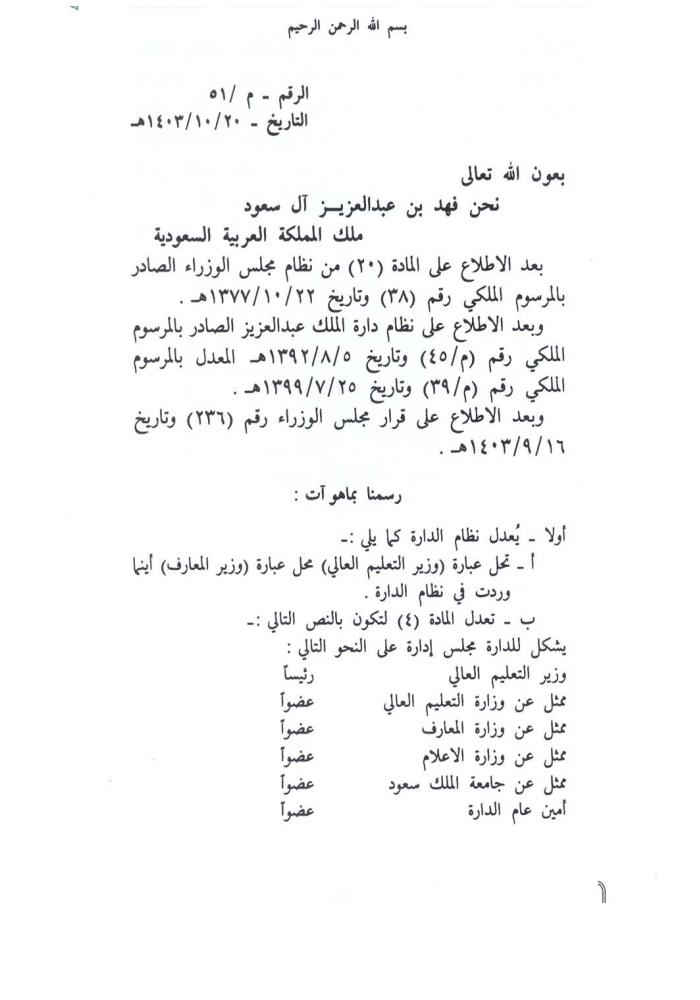 بسم الله الرحمن الرحيم
الرقم ـ م /٥١
التاريخ ـ ١٤٠٣/١٠/٢٠هـ
بعون الله تعالى
نحن فهد بن عبدالعزيــز آل سعود
ملك المملكة العربية السعودية
بعد الاطلاع على المادة (٢٠) من نظام مجلس الوزراء الصادر
بالمرسوم الملكي رقم (٣٨) وتاريخ ١٣٧٧/١٠/٢٢هـ .
وبعد الاطلاع على نظام دارة الملك عبدالعزيز الصادر بالمرسوم
الملكي رقم (م/٤٥) وتاريخ ١٣٩٢/٨/٥هـ المعدل بالمرسوم
الملكي رقم (م/٣٩) وتاريخ ١٣٩٩/٧/٢٥هـ .
وبعد الاطلاع على قرار مجلس الوزراء رقم (٢٣٦) وتاريخ
١٤٠٣/٩/١٦هـ .
رسمنا بماهو آت :
أولا ـ يُعدل نظام الدارة كما يلي :ـ
أ ـ تحل عبارة (وزير التعليم العالي) محل عبارة (وزير المعارف) أينما
وردت في نظام الدارة .
ب ـ تعدل المادة (٤) لتكون بالنص التالي :ـ
يشكل للدارة مجلس إدارة على النحو التالي :
وزير التعليم العالي رئيساً
ممثل عن وزارة التعليم العالي عضواً
ممثل عن وزارة المعارف عضواً
ممثل عن وزارة الاعلام عضواً
ممثل عن جامعة الملك سعود عضواً
أمين عام الدارة عضواً